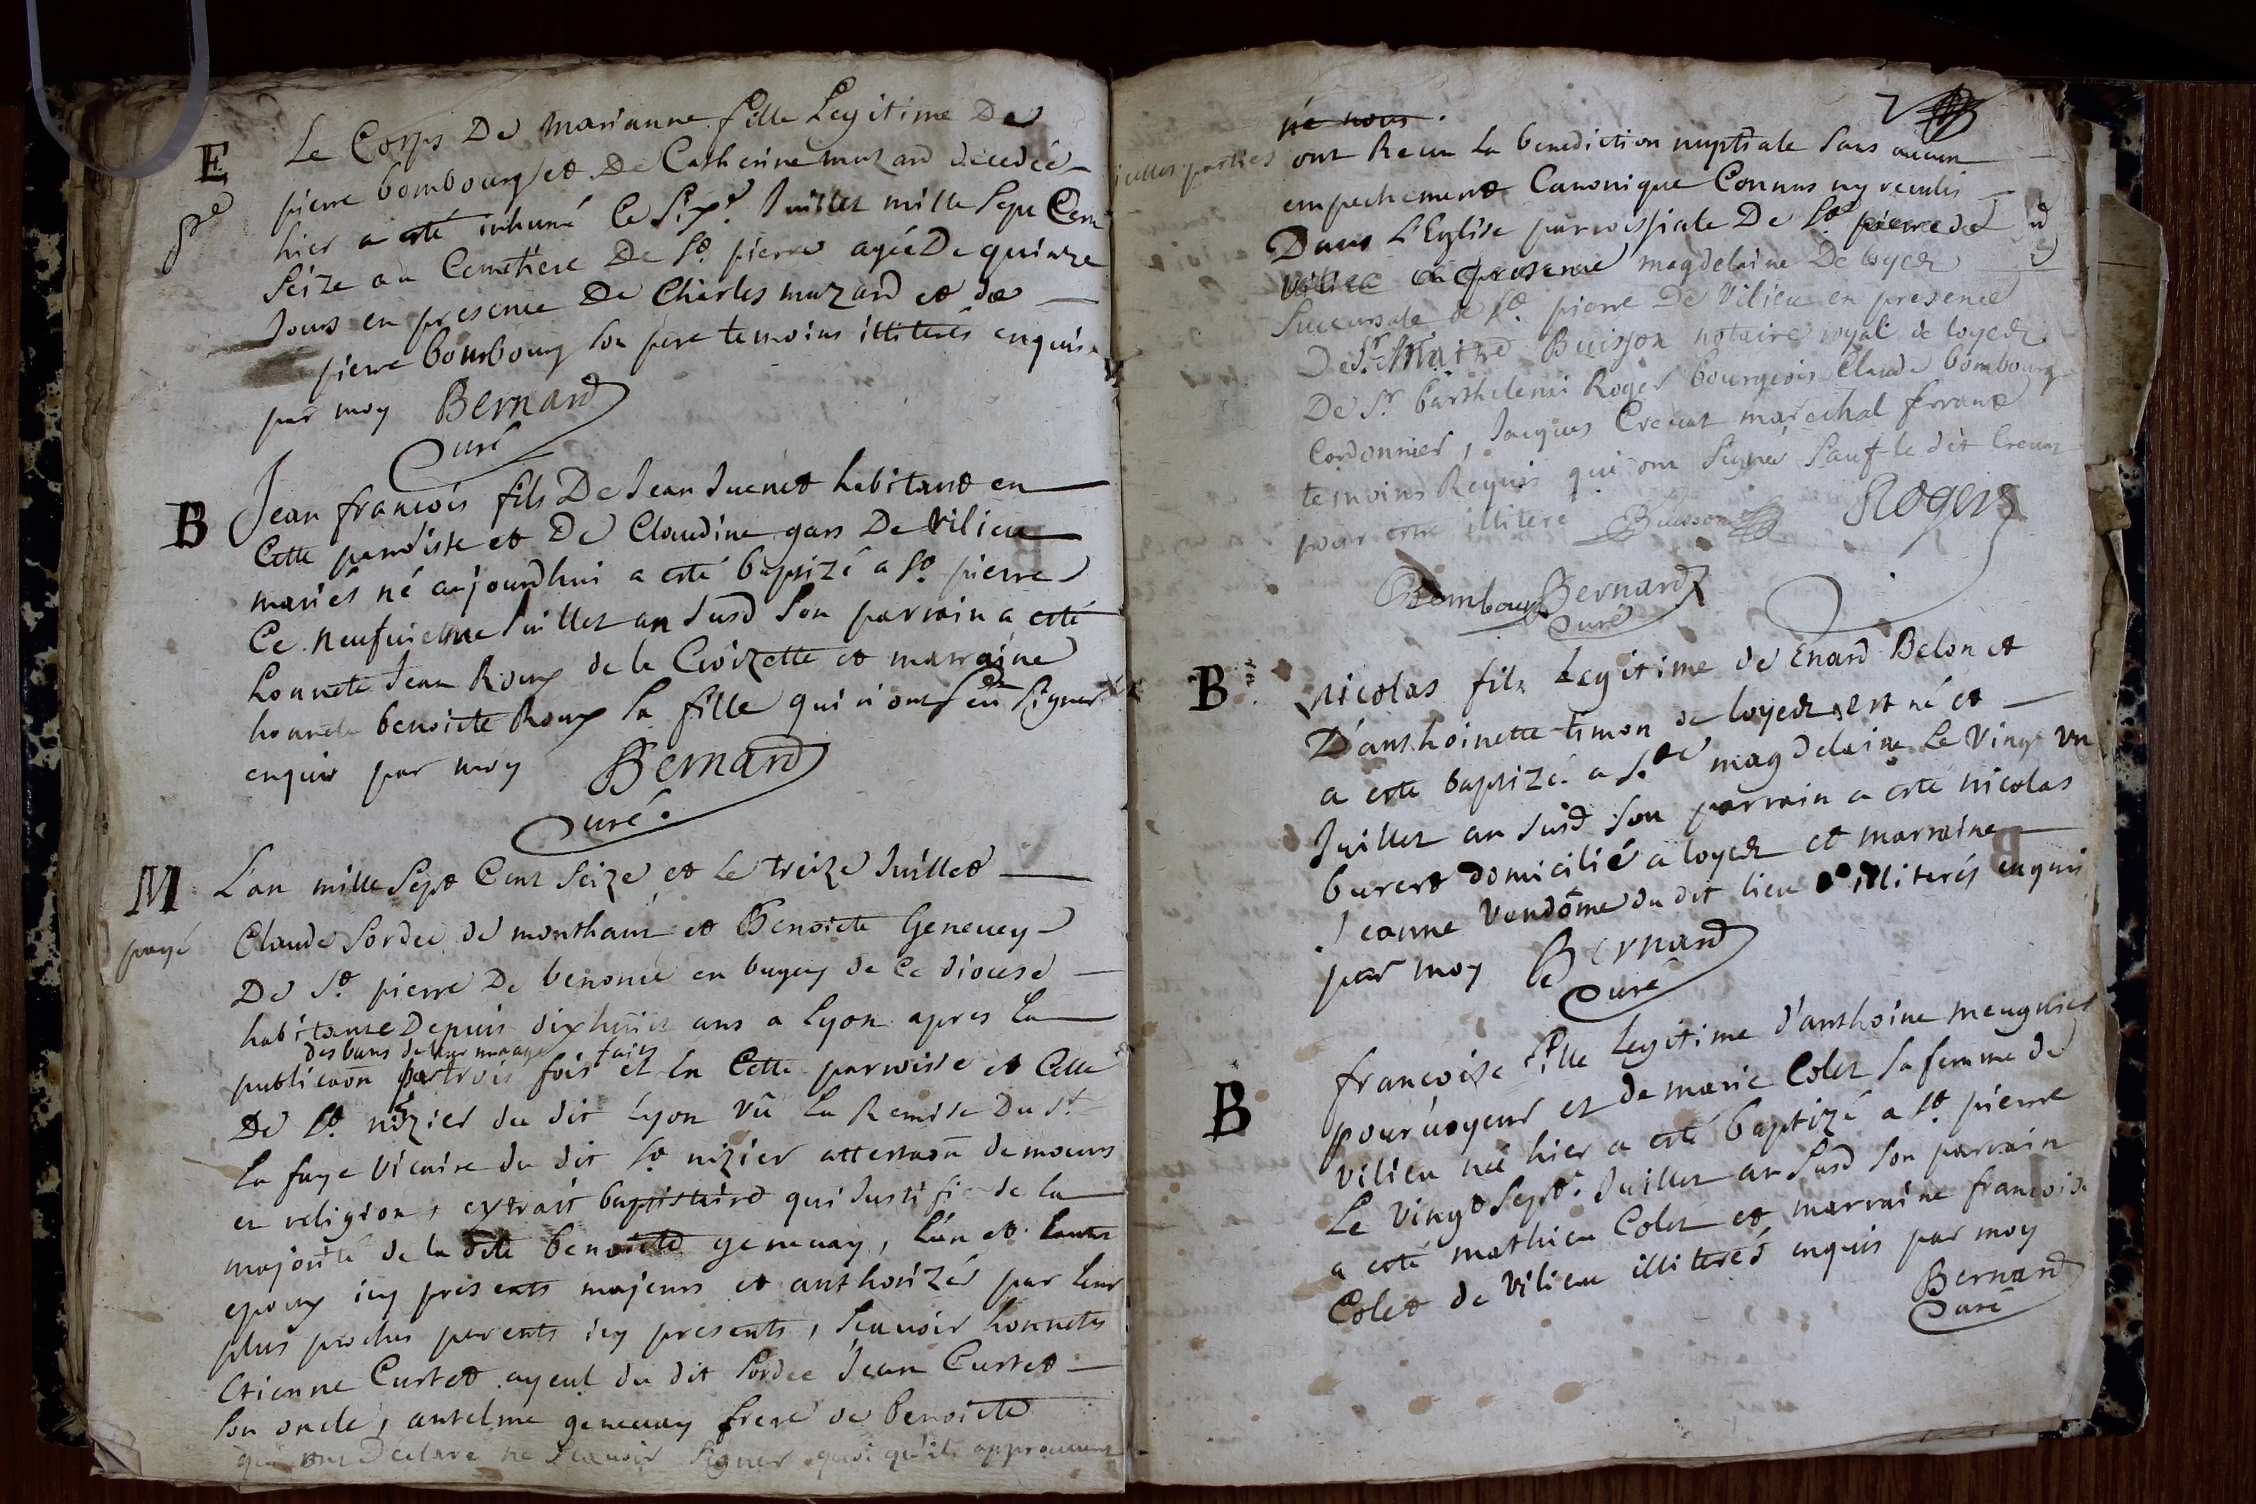 E Le Corps De marianne fille Legitime De
pierre bombourg et De Catherine muzard decedée
hier a esté inhumé Ce sixe. Juillet mille Sept Cent
Seize au Cemetiere De St. pierre agée De quinze
Jours en presence De Charles muzard et de
pierre bombourg son pere temoins illiterés enquis
par moy Bernard
Curé
B Jean francois fils De Jean Juenet habitant en
Cette paroisse et De Claudine gars De Vilieu
mariés né aujourdhui a esté baptizé a St. pierre
Ce neufuieme Juillet an susd Son parrain a esté
honnete Jean Roux de la Croizette et marraine
honnete benoicte Roux sa fille qui n'ont seu Signer
enquis par moy Bernard
Curé.
M L'an mille Sept Cent Seize et Le treize Juillet
payé Claude Sordee de montham et Benoicte Geneuey
De St. pierre De benonce en bugey de Ce diocese
habitante Depuis dixhuict ans a Lyon apres La
des bans de leur mariage faite
publicaōn par trois fois et En Cette paroisse et Celle
De St. nizier du dit Lyon vû La Remise Du Sr.
La faye Vicaire du dit St. nizier attestaōn de moeurs
et religion, extrait baptistaire qui Justifie de la
majorité de la dite benoicte geneuay, L'un et Lautre
epoux icy presents majeurs et authorizés par Leur
plus proches parents icy presents, Scauoir honnetes
Etienne Curtet ayeul du dit Sordee Jean Curtet
Son oncle, antelme geneuay frere de benoicte
qui ont Declaré ne Scauoir Signer quoi qu'ils approuuent
7
né nous.
icelles parties ont Receu La benediction nuptiale Sans aucun
empechement Canonique Connus ny reuelés
Dans L'Eglise parroissiale De St. pierre de
Vilieu en presence magdelaine De loyes
Succursale de St. pierre De Vilieu en presence
De Sr. Maitre Buisson notaire royal de loyes
De Sr. barthelemi Roger bourgeois Claude bombourg
Cordonnier, Jacques Creuat marechal ferrant
temoins Requis qui ont Signé Sauf le dit Creuat
pour estre illiteré Buisson Rogers
Bombourg Bernard
Curé
B Nicolas fils Legitime de Enard Belon et
D'anthoinette timon de loyes est né et
a esté baptizé a Ste magdelaine Le vingt un
Juillet an susd Son parrain a esté nicolas
burert domicilié a loyes et marraine
Jeanne Vendôme du dit lieu illiterés enquis
par moy Bernard
Curé
B francoise fille Legitime d'anthoine meugnier
pouruoyeur et de marie Colet sa femme de
vilieu née hier a esté baptizé a St. pierre
Le vingt Septe. Juillet an susd Son parrain
a esté mathieu Colet et marraine francoise
Colet de Vilieu illiterés enquis par moy
Bernard
Curé